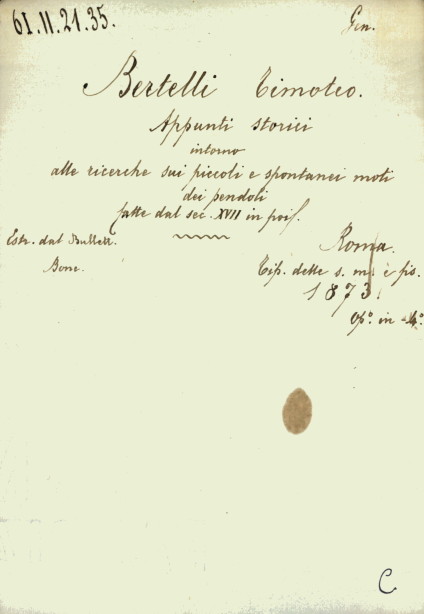 61.11.21.35.
Gen.
Bertelli Timoteo.
Appunti storici
intorno
alle ricerche sui piccoli e spontanei moti
dei pendoli
fatte dal sec. XVII in poi.
Estr. dal Bullett.
Bonc.
Roma.
Tip. delle s. m. e fis.
1873.
Op.º in 4.º
C